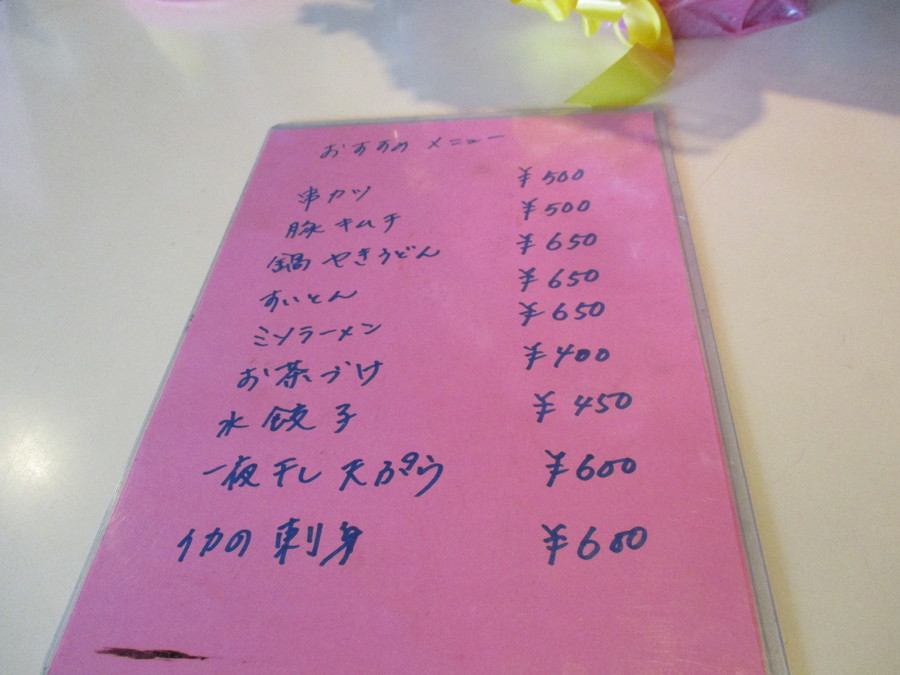 おすすめ メニュー
串カツ ¥500
豚キムチ ¥500
鍋やきうどん ¥650
すいとん ¥650
ミソラーメン ¥650
お茶づけ ¥400
水餃子 ¥450
一夜干し天ぷら ¥600
イカの刺身 ¥600